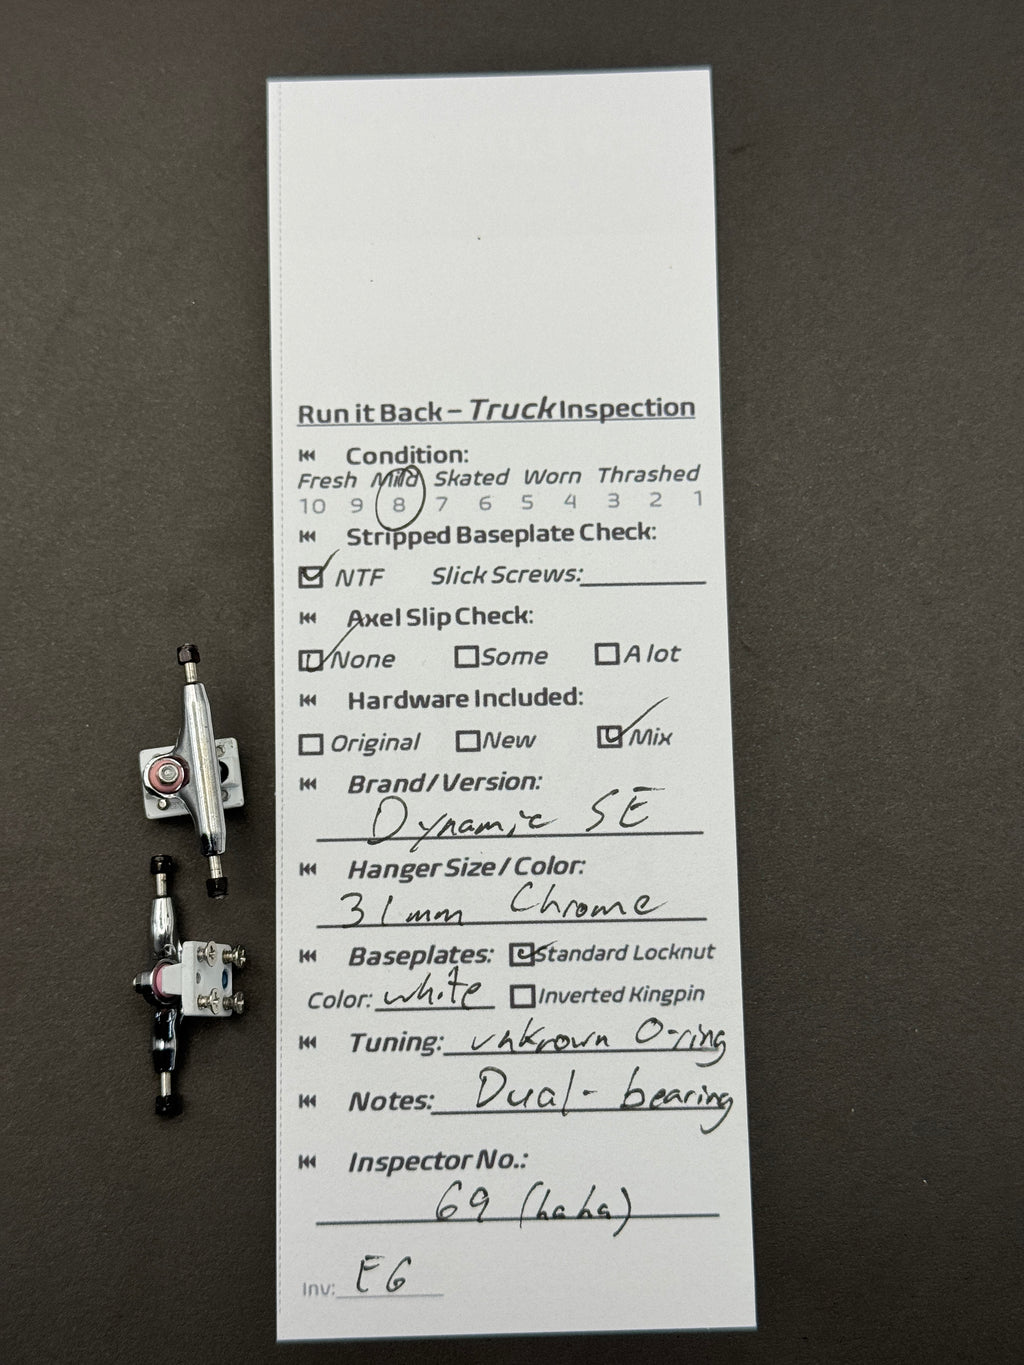 Run it Back – Truck Inspection
Condition:
Fresh Mild Skated Worn Thrashed
10 9 8 7 6 5 4 3 2 1
Stripped Baseplate Check:
NTF Slick Screws:
Axel Slip Check:
None Some A lot
Hardware Included:
Original New Mix
Brand/Version:
Dynamic SE
Hanger Size/Color:
31mm Chrome
Baseplates: Standard Locknut
Color: white Inverted Kingpin
Tuning: unknown O-ring
Notes: Dual-bearing
Inspector No.:
69 (haha)
Inv: E6